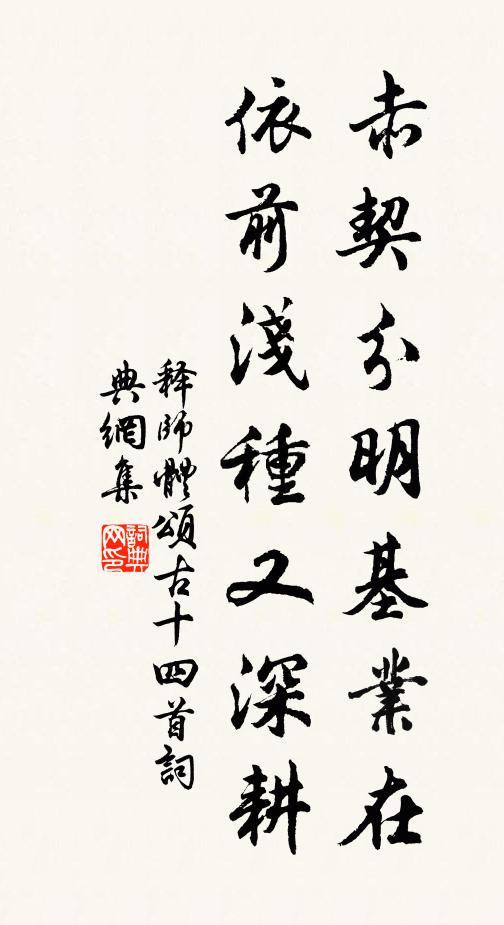 赤契分明基業在
依前淺種又深耕
释師體頌古十四首詞
典網集
詞典
网印